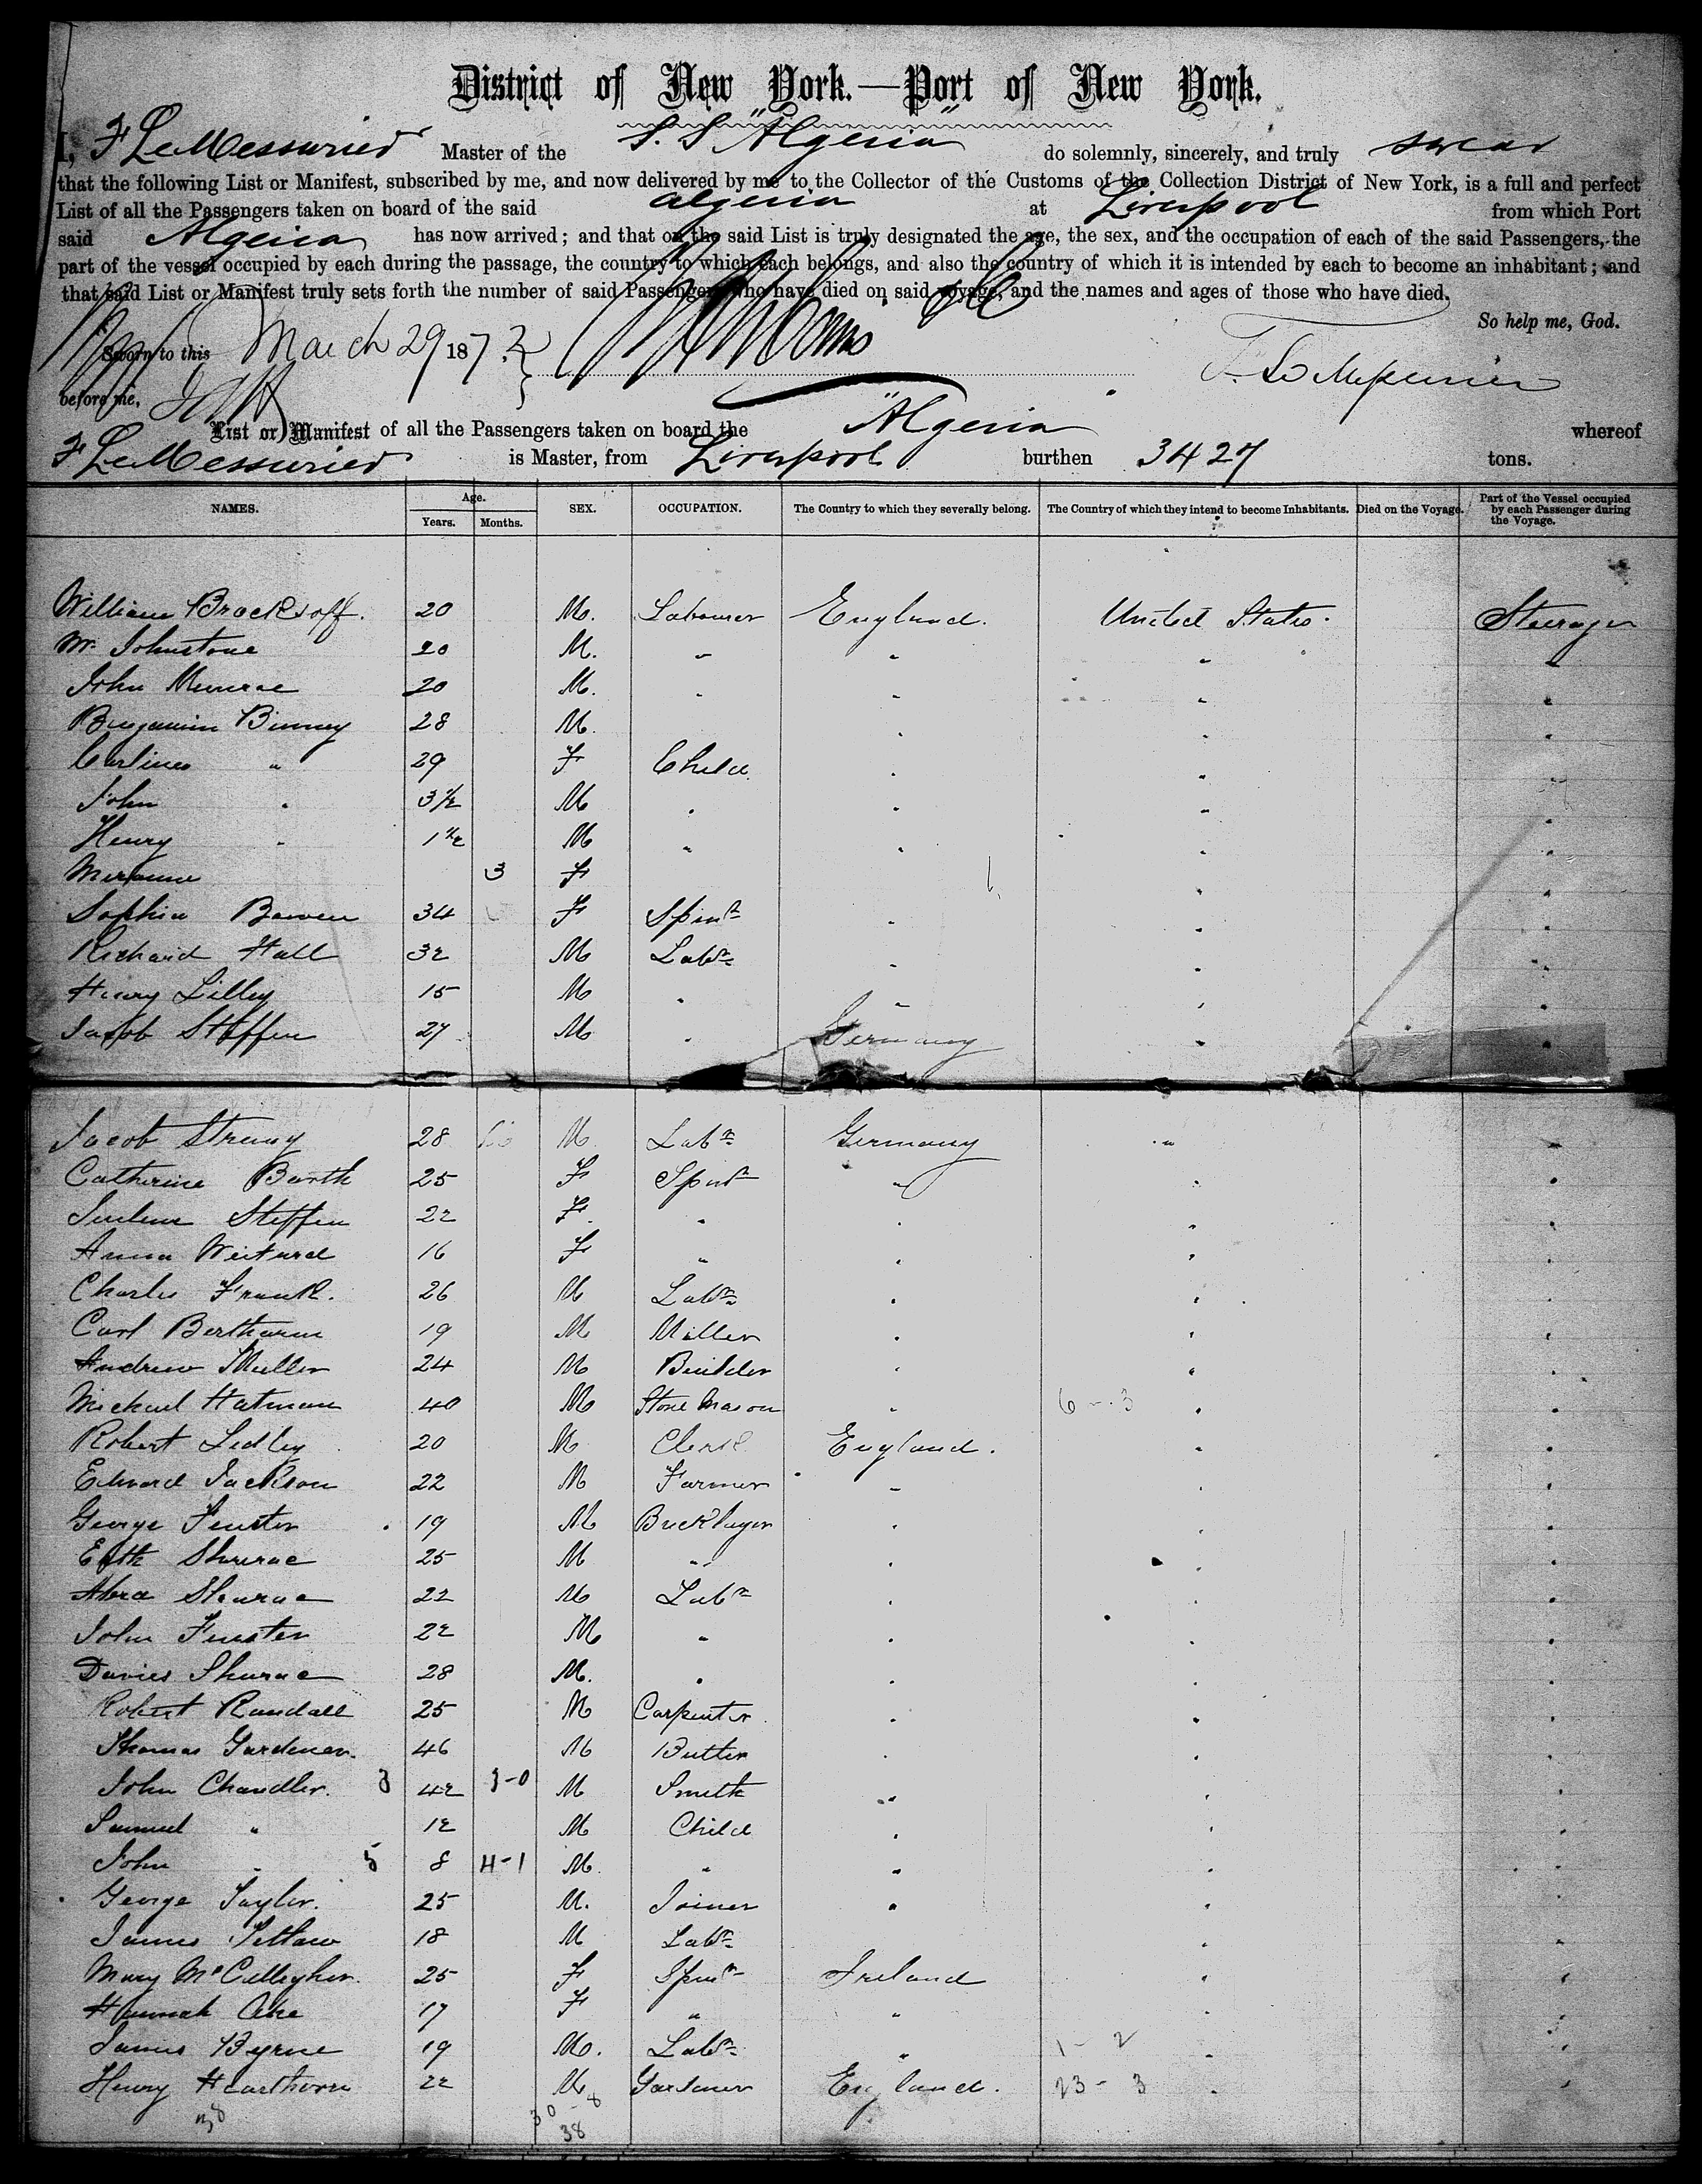 District of New York.—Port of New York.
I, F LeMessurier Master of the S. S "Algeria" do solemnly, sincerely, and truly swear
that the following List or Manifest, subscribed by me, and now delivered by me to the Collector of the Customs of the Collection District of New York, is a full and perfect
List of all the Passengers taken on board of the said Algeria at Liverpool from which Port
said Algeria has now arrived; and that on the said List is truly designated the age, the sex, and the occupation of each of the said Passengers, the
part of the vessel occupied by each during the passage, the country to which each belongs, and also the country of which it is intended by each to become an inhabitant; and
that said List or Manifest truly sets forth the number of said Passengers who have died on said voyage, and the names and ages of those who have died.
So help me, God.
Sworn to this March 29 1872
before me,
List or Manifest of all the Passengers taken on board the Algeria whereof
F LeMessurier is Master, from Liverpool burthen 3427 tons.
NAMES. Age. Years. Months. SEX. OCCUPATION. The Country to which they severally belong. The Country of which they intend to become Inhabitants. Died on the Voyage. Part of the Vessel occupied by each Passenger during the Voyage.
William Brocksoff. 20 M. Labourer England. United States. Steerage
Wm. Johnstone 20 M. " " " "
John Munroe 20 M. " " " "
Benjamin Binney 28 M. " " "
Carline " 29 F Child " " "
John " 3½ M " " " "
Henry " 1½ M " " " "
3 F " "
Sophia Bowen 34 F Spinr " " "
Richard Hall 32 M Labr " " "
Henry Lilley 15 M " " " "
Jacob Steffen 27 M " Germany " "
Jacob Streny 28 M Labr Germany " "
Catherine Barth 25 F Spinr " " "
Steffen 22 F. " " " "
Anna 16 F " " " "
Charles Frank. 26 M Labr " " "
Carl 19 M Miller " " "
Andrew Muller 24 M Builder " " "
Michael Hatman 40 M Stone Mason " 6 - 3 " "
Robert Ledley 20 M Clerk England. " "
Edward Jackson 22 M Farmer " " "
George Fenster 19 M Bricklayer " " "
25 M " " " "
22 M Labr " " "
John Fenster 22 M " " " "
Davies 28 M. " " " "
Robert Randall 25 M Carpenter " " "
Thomas Gardener. 46 M Butler " " "
John Chandler. 3 42 3-0 M Smith " " "
Samuel " 12 M Child " " "
John " 5 8 4-1 M. " " " "
George Taylor. 25 M. Joiner " " "
James Tetlaw 18 M Labr " "
Mary McCallegher. 25 F Spinr Ireland " "
Hannah 17 F " " " "
James Byrne 19 M. Labr " 1 - 2 " "
Henry Hearthorn 22 M Gardener England. 23 - 3 " "
38 30 - 8
38